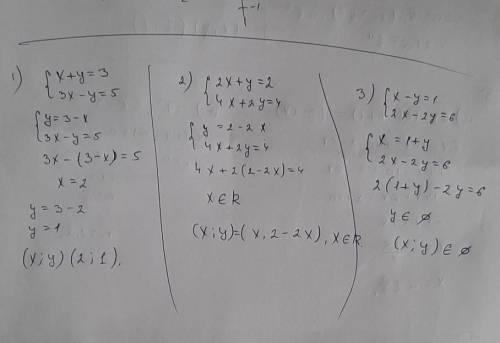 f⁻¹
1) { x+y=3
3x-y=5
{ y=3-x
3x-y=5
3x-(3-x)=5
x=2
y=3-2
y=1
(x;y) (2;1).
2) { 2x+y=2
4x+2y=4
{ y=2-2x
4x+2y=4
4x+2(2-2x)=4
x∈R
(x;y)=(x, 2-2x), x∈R
3) { x-y=1
2x-2y=6
{ x=1+y
2x-2y=6
2(1+y)-2y=6
y∈∅
(x;y)∈∅